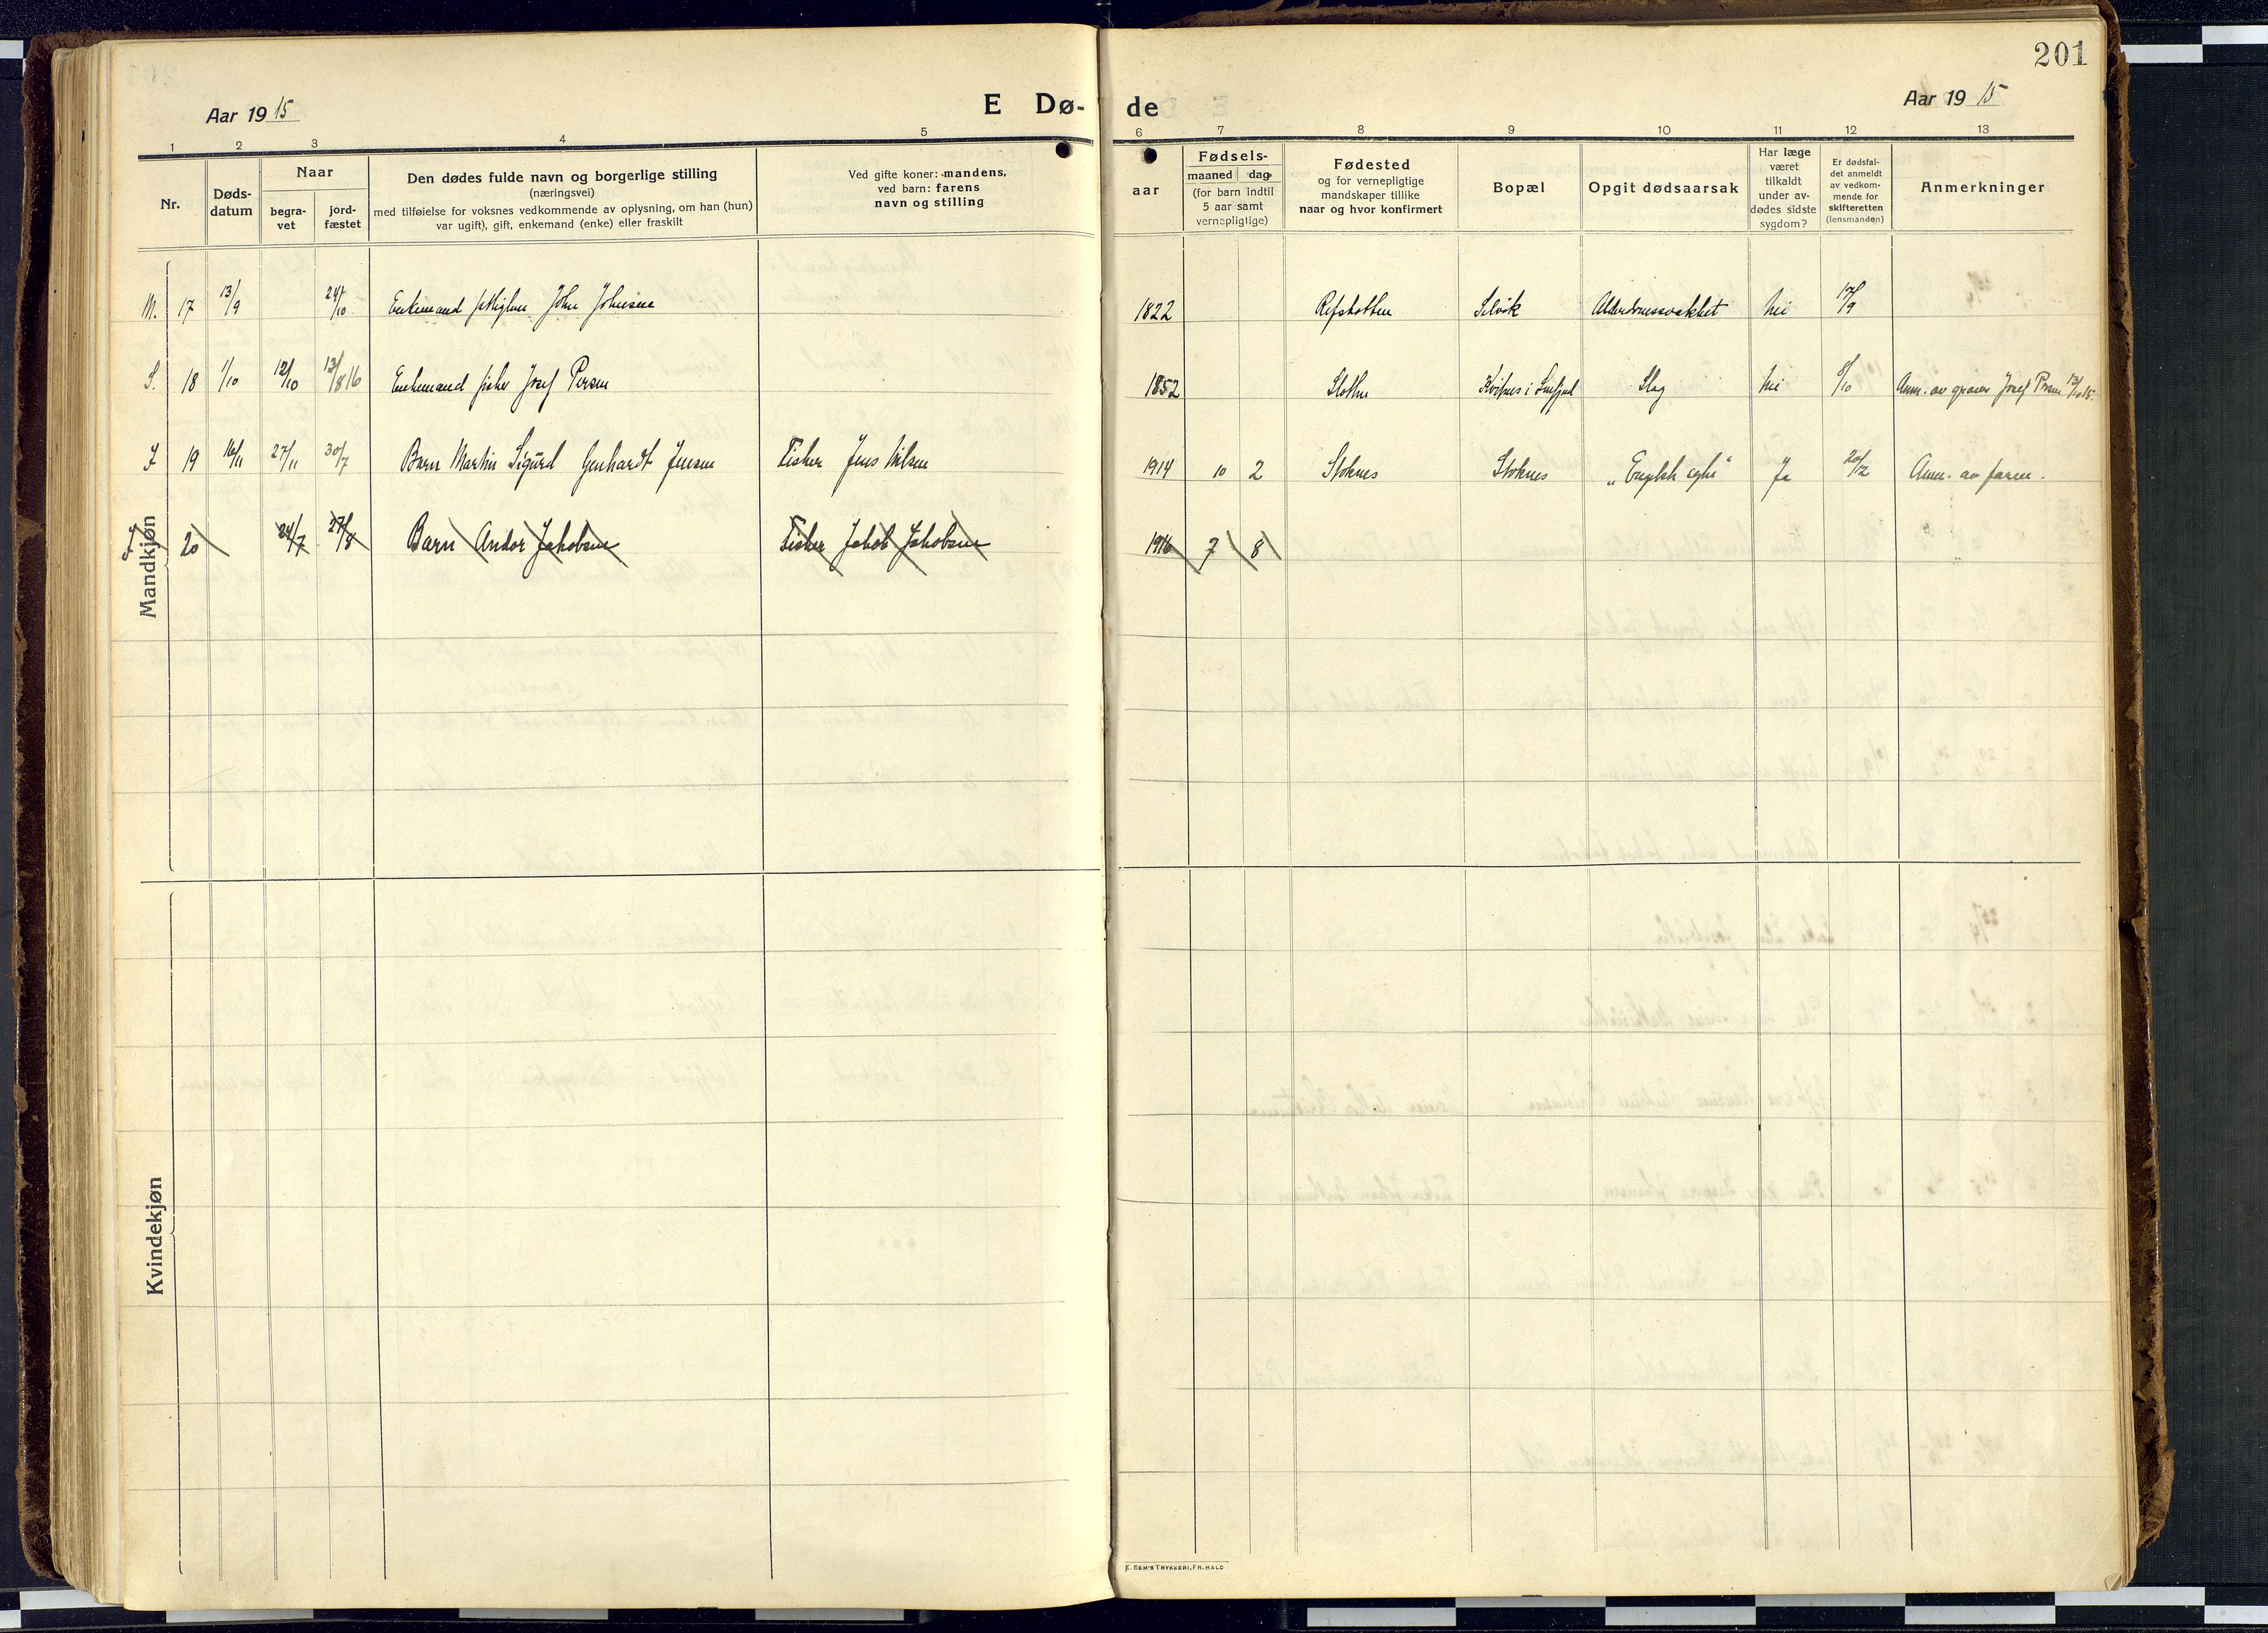 201
Aar 19 15
E Dø-
de
Aar 19 15
1 2 3 4 5 6 7 8 9 10 11 12 13
Nr.
Døds-
datum
Naar
begra-
vet
jord-
fæstet
Den dødes fulde navn og borgerlige stilling
(næringsvei)
med tilføielse for voksnes vedkommende av oplysning, om han (hun)
var ugift), gift, enkemand (enke) eller fraskilt
Ved gifte koner: mandens,
ved barn: farens
navn og stilling
aar
Fødsels-
maaned dag
(for barn indtil
5 aar samt
vernepligtige)
Fødested
og for vernepligtige
mandskaper tillike
naar og hvor konfirmert
Bopæl
Opgit dødsaarsak
Har læge
været
tilkaldt
under av-
dødes sidste
sygdom?
Er dødsfal-
det anmeldt
av vedkom-
mende for
skifteretten
(lensmanden)
Anmerkninger
M. 17 13/9 24/10 Enkemand John Johnsen 1822 Selvik Alderdomssvakhet Nei 17/9
S. 18 1/10 12/10 13/8 16 Enkemand fisker Josef Persen 1852 Slag Nei 8/10 Anm. av Josef
F 19 16/11 27/11 30/7 Barn Martin Sigurd Gerhardt Jensen Fisker Jens Nilsen 1914 10 2 Stoknes Stoknes „Engelsk syke" Ja 20/12 Anm. av faren.
F 20 24/7 27/8 Barn Andor Jakobsen Fisker Jakob Jakobsen 1916 7 8
Mandkjøn
Kvindekjøn
E. SEM'S TRYKKERI, FR.HALD